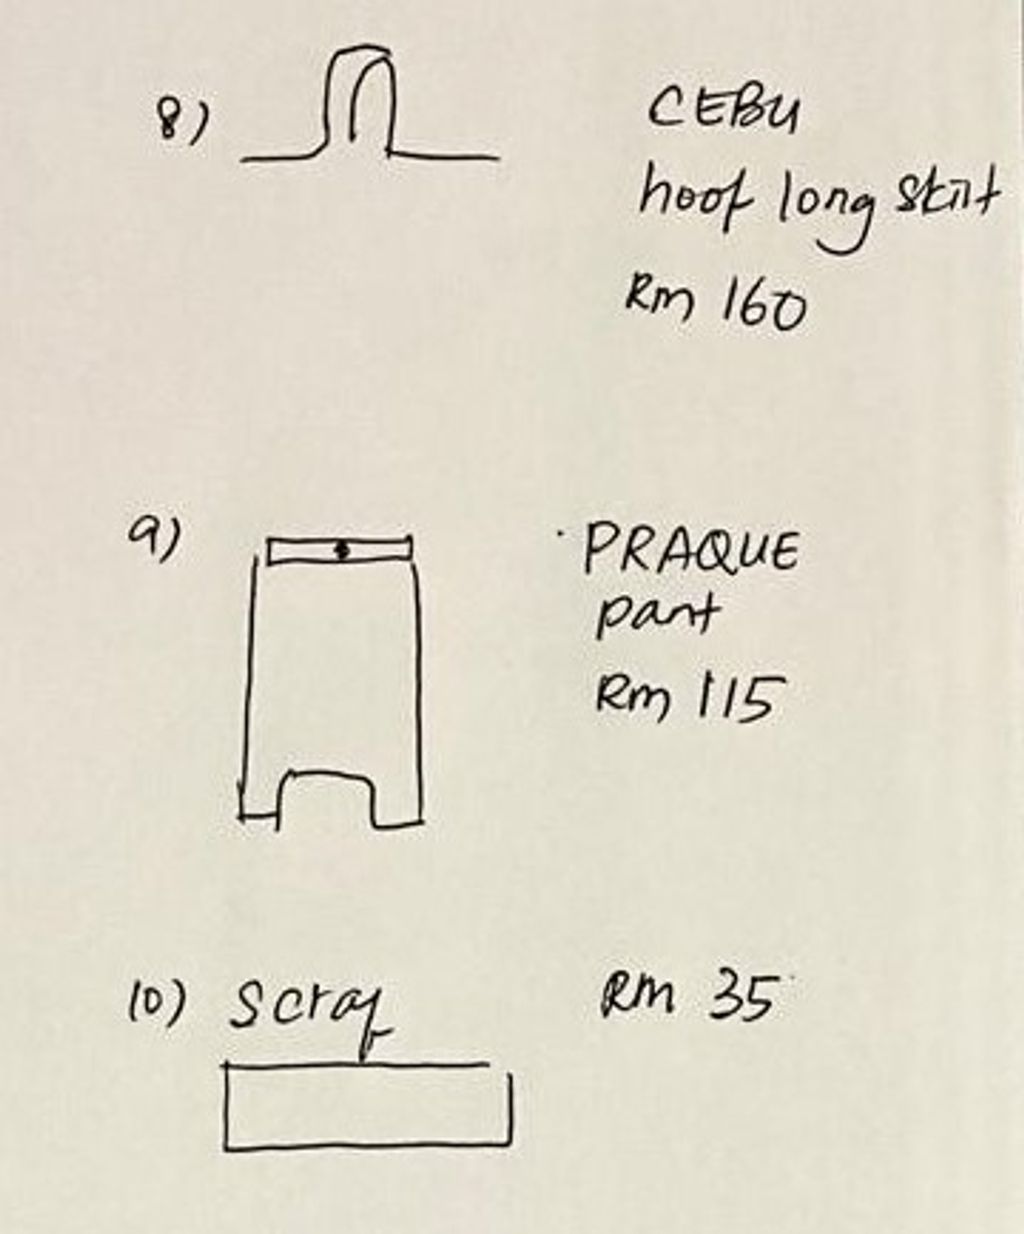 8) CEBU
hoof long skirt
Rm 160
9) PRAQUE
pant
Rm 115
10) Scraf RM 35